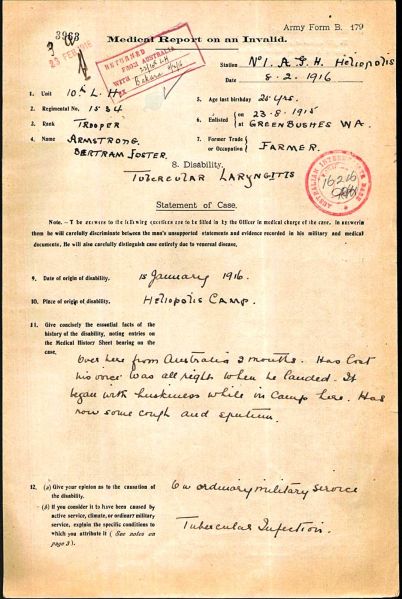 Army Form B. 179
3963
23 FEB 1916
Medical Report on an Invalid.
RETURNED
FROM AUSTRALIA
WITH
Station No 1. A. G. H. Heliopolis
Date 8. 2. 1916
1. Unit 10th L. H.
2. Regimental No. 1534
3. Rank TROOPER
4. Name ARMSTRONG.
BERTRAM FOSTER.
5. Age last birthday 25 yrs.
6. Enlisted { on 23-8-1915
at GREENBUSHES WA.
7. Former Trade or Occupation } FARMER.
8. Disability.
TUBERCULAR LARYNGITIS
AUSTRALIAN INTERMEDIATE BASE
16 2 16
Statement of Case.
Note. – The answers to the following questions are to be filled in by the Officer in medical charge of the case. In answering
them he will carefully discriminate between the man's unsupported statements and evidence recorded in his military and medical
documents. He will also carefully distinguish case entirely due to venereal disease.
9. Date of origin of disability. 15 January 1916.
10. Place of origin of disability. HELIOPOLIS CAMP.
11. Give concisely the essential facts of the
history of the disability, noting entries on
the Medical History Sheet bearing on the
case.
Over here from Australia 3 months. Has lost
his voice was all right when he landed. It
began with huskiness while in camp here. Has
now some cough and sputum.
12. (a) Give your opinion as to the causation of
the disability.
On ordinary military service
(b) If you consider it to have been caused by
active service, climate, or ordinary military
service, explain the specific conditions to
which you attribute it (See notes on
page 3).
Tubercular Infection.